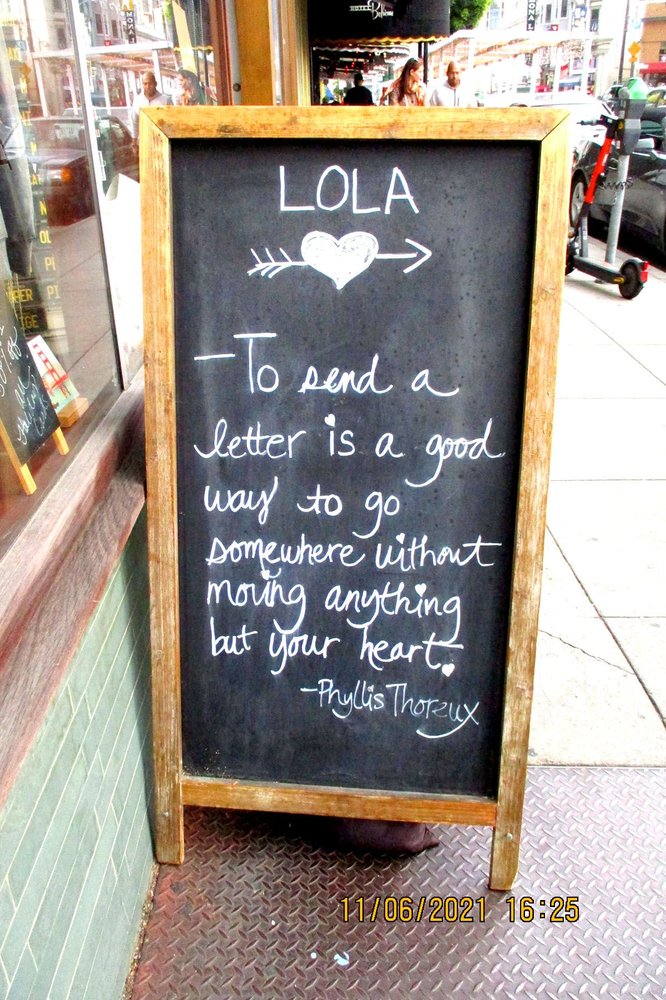 LOLA
—To send a
letter is a good
way to go
somewhere without
moving anything
but your heart.
-Phyllis Thoreux
11/06/2021 16:25